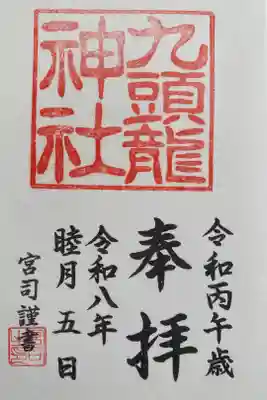 九頭龍
神社
令和丙午歳
奉拝
令和八年
睦月五日
宮司謹書